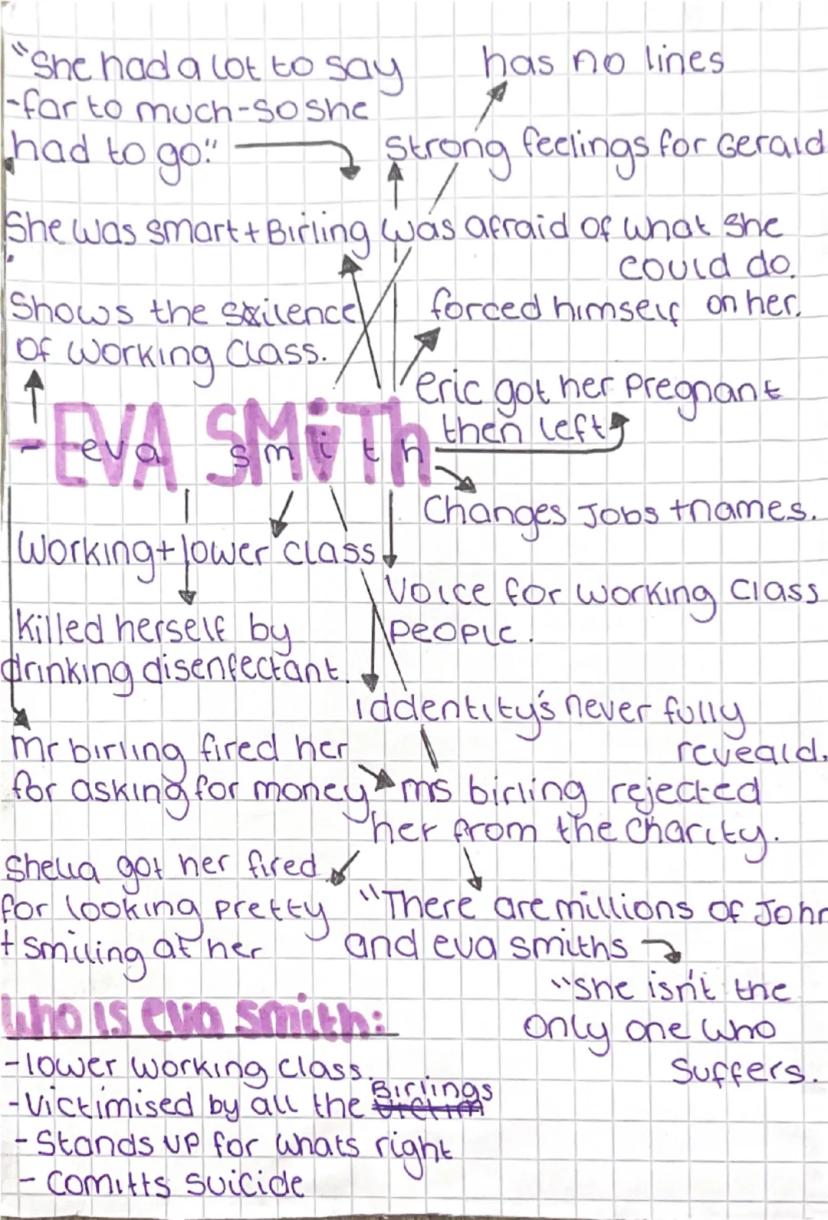 "She had a lot to say
-far to much-so she
had to go."
has no lines
Strong feelings for Gerald
She was smart + Birling was afraid of what she
could do.
Shows the silence
of working class.
forced himself on her.
eric got her pregnant
then left
- EVA SMiTh
eva smith
Changes Jobs + names.
Working + lower class
Voice for working class
people.
Killed herself by
drinking disenfectant.
iddentity's never fully
reveald.
Mr birling fired her
for asking for money
ms birling rejected
her from the charity.
Shelia got her fired
for looking pretty
+ smiling at her
"There are millions of John
and eva smiths
"She isn't the
only one who
suffers.
Who is eva smith:
-lower working class.
-Victimised by all the Birlings
- Stands up for whats right
- comitts suicide